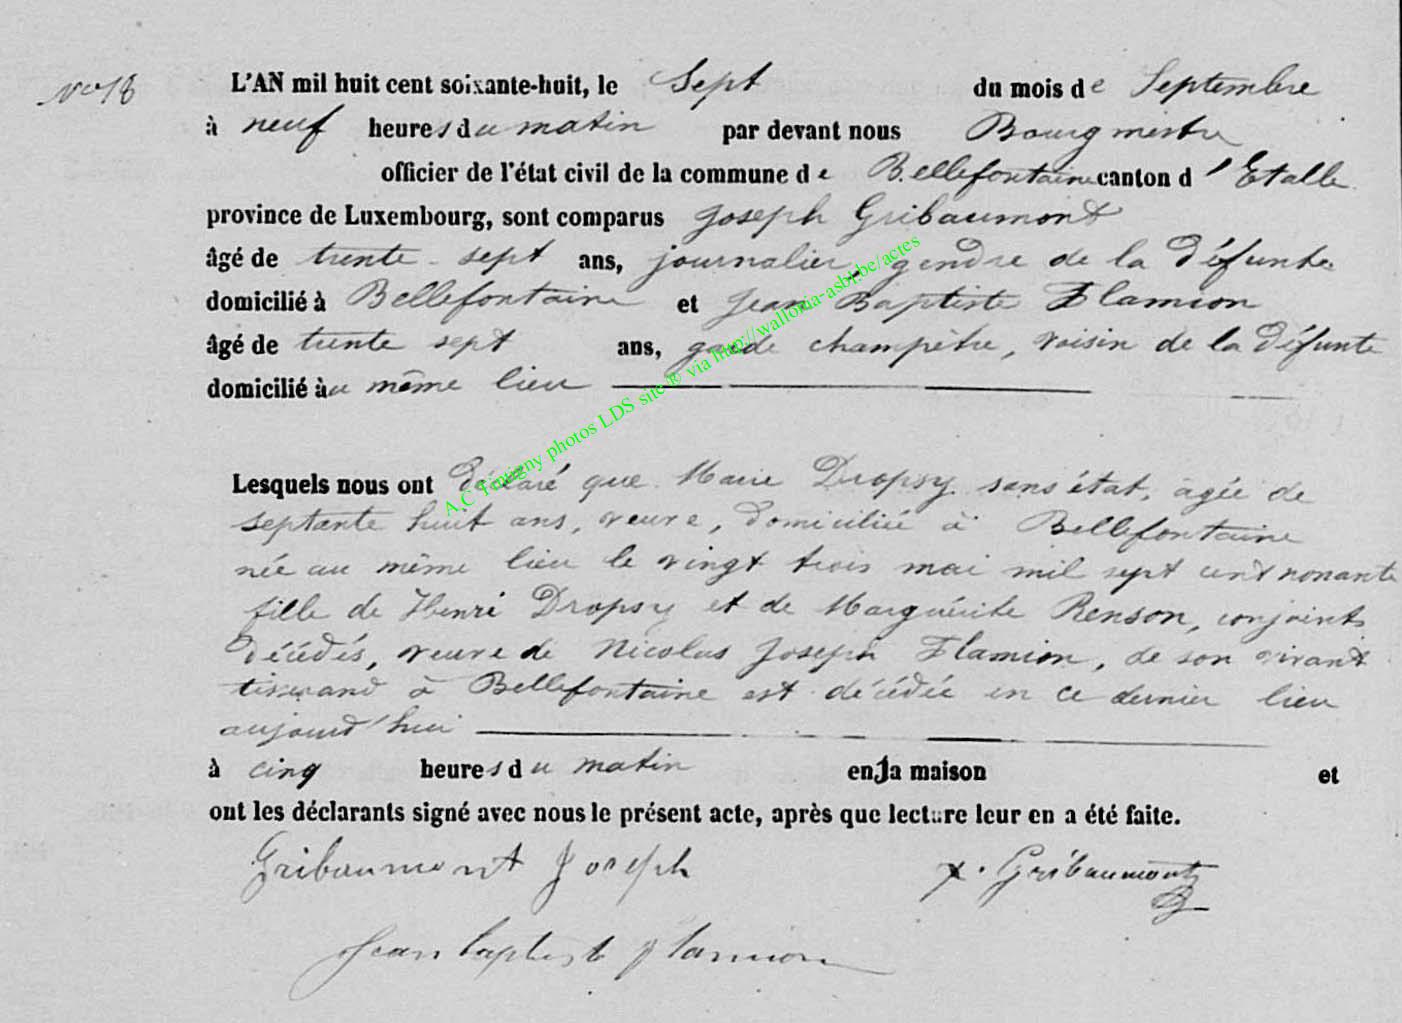 No 18
L'AN mil huit cent soixante-huit, le Sept du mois de Septembre
à neuf heures du matin par devant nous Bourgmestre
officier de l'état civil de la commune de Bellefontaine canton d'Etalle
province de Luxembourg, sont comparus Joseph Gribaumont
âgé de trente-sept ans, journalier, gendre de la défunte
domicilié à Bellefontaine et Jean Baptiste Flamion
âgé de trente sept ans, garde champêtre, voisin de la défunte
domicilié au même lieu
Lesquels nous ont déclaré que Marie Dropsy sans état, agée de
septante huit ans, veuve, domiciliée à Bellefontaine
née au même lieu le vingt trois mai mil sept cent nonante
fille de Henri Dropsy et de Marguérite Renson, conjoints
décédés, veuve de Nicolas Joseph Flamion, de son vivant
tisserand à Bellefontaine est décédée en ce dernier lieu
aujourd'hui
à cinq heures du matin en sa maison et
ont les déclarants signé avec nous le présent acte, après que lecture leur en a été faite.
Gribaumont Joseph
x. Gribaumont
Jean baptiste flamion
A.C Tintigny photos LDS site ® via http://wallonia-asbl.be/actes